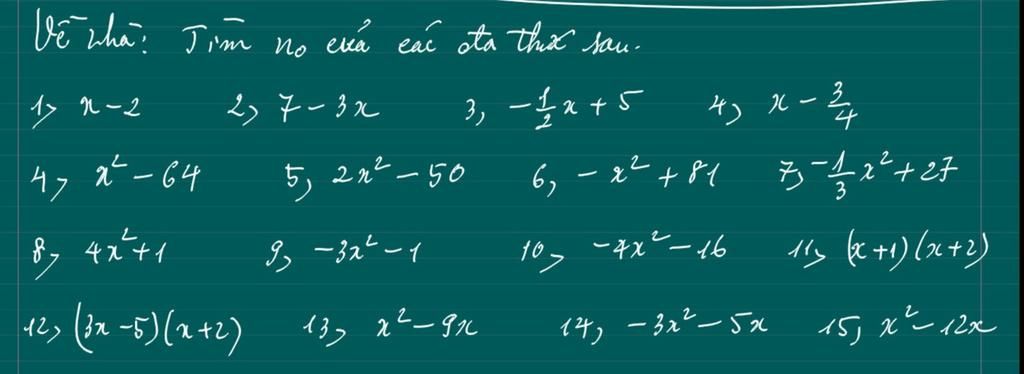 Về nhà: Tìm no của các đa thức sau.
1, x - 2 2, 7 - 3x 3, -1/2 x + 5 4, x - 3/4
4, x² - 64 5, 2x² - 50 6, -x² + 81 7, -1/3 x² + 27
8, 4x² + 1 9, -3x² - 1 10, -4x² - 16 11, (x+1)(x+2)
12, (3x - 5)(x + 2) 13, x² - 9x 14, -3x² - 5x 15, x² - 12x